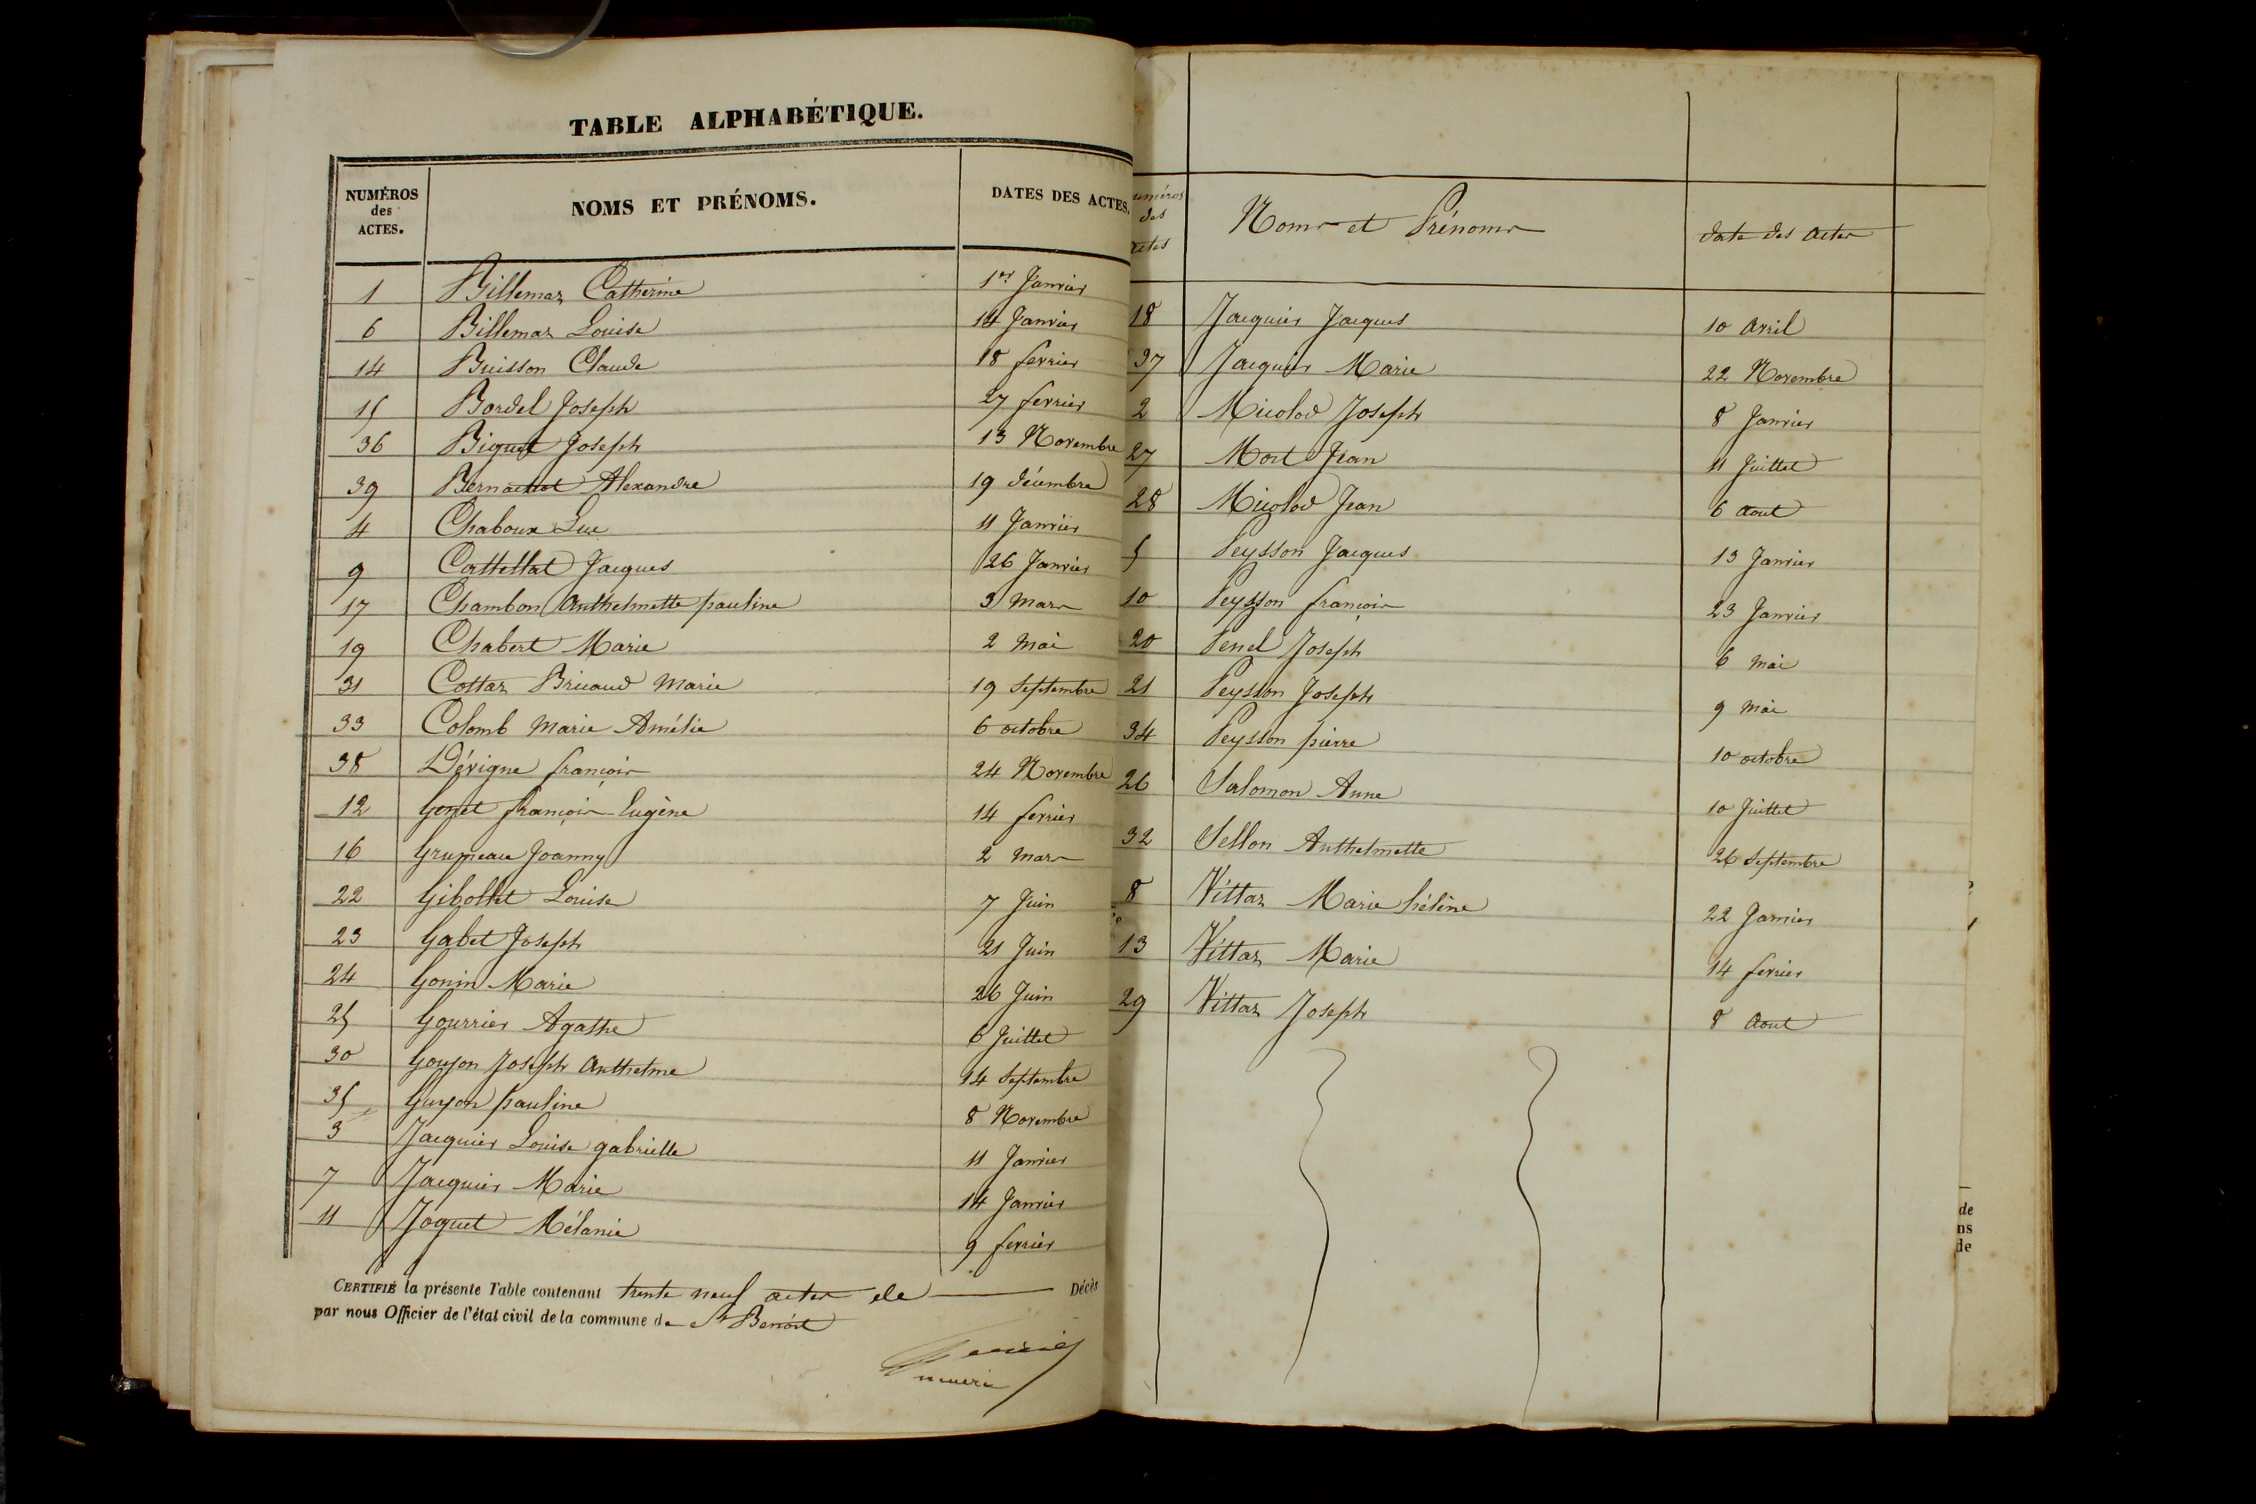 TABLE ALPHABÉTIQUE.
NUMÉROS des ACTES. NOMS ET PRÉNOMS. DATES DES ACTES.
1 Billemaz Catherine 1er Janvier
6 Billemaz Louise 14 Janvier
14 Buisson Claude 18 fevrier
15 Bordel Joseph 27 fevrier
36 Biguet Joseph 13 Novembre
39 Bernachot Alexandre 19 décembre
4 Chaboux Luc 11 Janvier
9 Cattellat Jacques 26 Janvier
17 Chambon Anthelmette pauline 3 Mars
19 Chabert Marie 2 Mai
31 Cottaz Bricaud Marie 19 Septembre
33 Colomb Marie Amélie 6 octobre
38 Dévigne françois 24 Novembre
12 Gonet françois Eugène 14 fevrier
16 Grumeau Joanny 2 Mars
22 Gibollet Louise 7 Juin
23 Gabet Joseph 21 Juin
24 Gonin Marie 26 Juin
25 Gourrier Agathe 6 Juillet
30 Goujon Joseph Anthelme 14 Septembre
35 Guyon pauline 8 Novembre
3 Jacquier Louise gabrielle 11 Janvier
7 Jacquier Marie 14 Janvier
11 Joguet Mélanie 9 fevrier
CERTIFIÉ la présente Table contenant trente neuf actes de Décès
par nous Officier de l'état civil de la commune de St Benoit
numéros des actes Noms et Prénoms date des actes
18 Jacquier Jacques 10 Avril
37 Jacquier Marie 22 Novembre
2 Micolod Joseph 8 Janvier
27 Mort Jean 11 Juillet
28 Micolod Jean 6 Aout
5 Peysson Jacques 13 Janvier
10 Peysson françois 23 Janvier
20 Penel Joseph 6 Mai
21 Peysson Joseph 9 Mai
34 Peysson pierre 10 octobre
26 Salomon Anne 10 Juillet
32 Sellon Anthelmette 26 Septembre
8 Vittaz Marie héléne 22 Janvier
13 Vittaz Marie 14 fevrier
29 Vittaz Joseph 8 Aout
de
ns
de